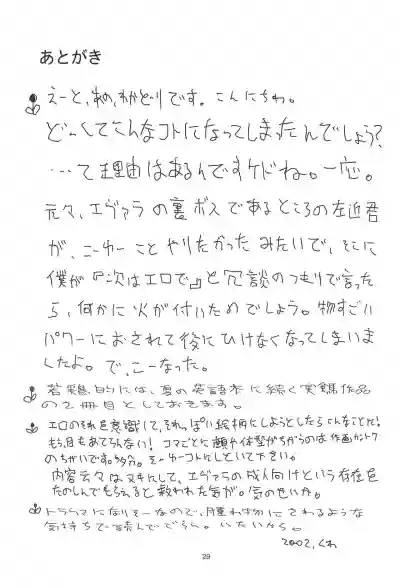 あとがき
えーと、わかどりです。こんにちわ。
どーしてこんなコトになってしまったんでしょう?
…て理由はあるんですケドね。一応。
元々、エヴァラの裏ボスであるところの左近君
が、こーゆーことやりたかったみたいで、そこに
僕が『次はエロで』と冗談のつもりで言った
ら、何かに火が付いたのでしょう。物すごい
パワーにおされて後にひけなくなってしまいま
したよ。で、こーなった。
若鶏的には、夏の英語本に続く実験作品
の2冊目としておきます。
エロのそれを意識して、それっぽい絵柄にしようとしたらこんなことに!
もう、目もあてらんない!コマごとに顔や体型がちがうのは作画カントク
のちがいです。多分。そーゆーコトにしといて下さい。
内容云々はヌキにして、エヴァラの成人向けという存在を
たのしんでもらえると救われた気が。気のせいか。
トラウマになりそーなので、腫れ物にさわるような
気持ちで読んで下さい。いたいから。
2002,
29